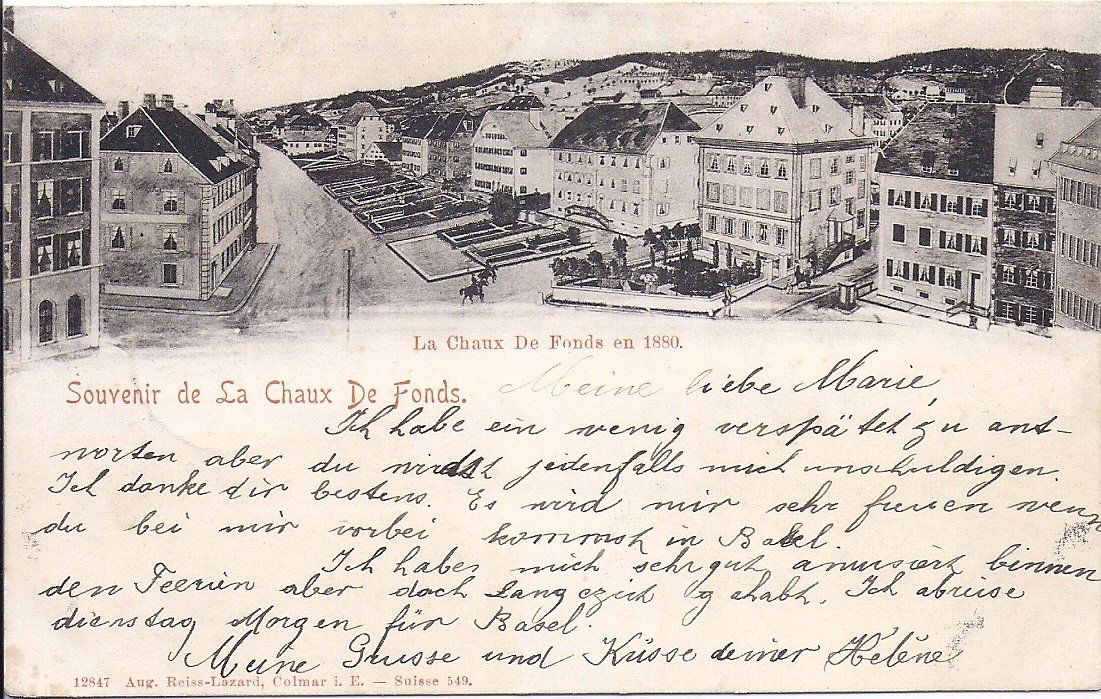 La Chaux De Fonds en 1880.
Souvenir de La Chaux De Fonds.
Meine liebe Marie,
Ich habe ein wenig verspätet zu ant-
worten aber du wirdst jedenfalls mich unschuldigen.
Ich danke dir bestens. Es wird mir sehr freuen wenn
du bei mir vorbei kommst in Basel.
Ich habe mich sehr gut amusiert binnen
den Feerien aber doch Langezeit gehabt. Ich abreise
dienstag Morgen für Basel.
Meine Grusse und Küsse deiner Hélène
12847 Aug. Reiss-Lazard, Colmar i. E. — Suisse 549.